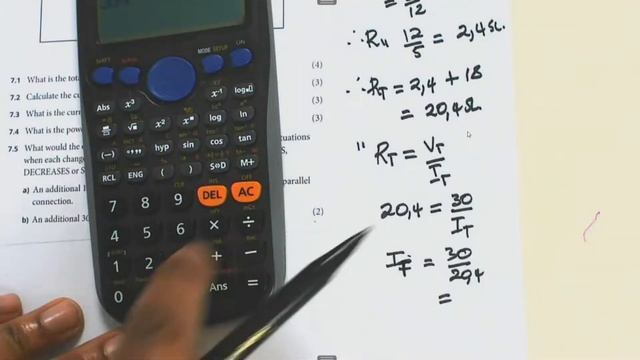 12
∴ R,, 12/5 = 2,4Ω
∴ R_T = 2,4 + 18
= 20,4Ω
" R_T = V_T/I_T
20,4 = 30/I_T
I_T = 30/20,4
=
7.1 What is the
(4)
7.2 Calculate the
(3)
7.3 What is the
(3)
7.4 What is the
7.5 What would the
when each
DECREASES or
a) An additional
parallel
connection.
b) An additional
(2)
MODE SETUP ON
SHIFT
Abs x³ x⁻¹ log
√ x² log ln
(−) hyp sin cos tan
RCL ENG ( ) S⇔D M+
7 8 9 DEL AC
4 5 6 × ÷
1 2 + −
0 Ans =